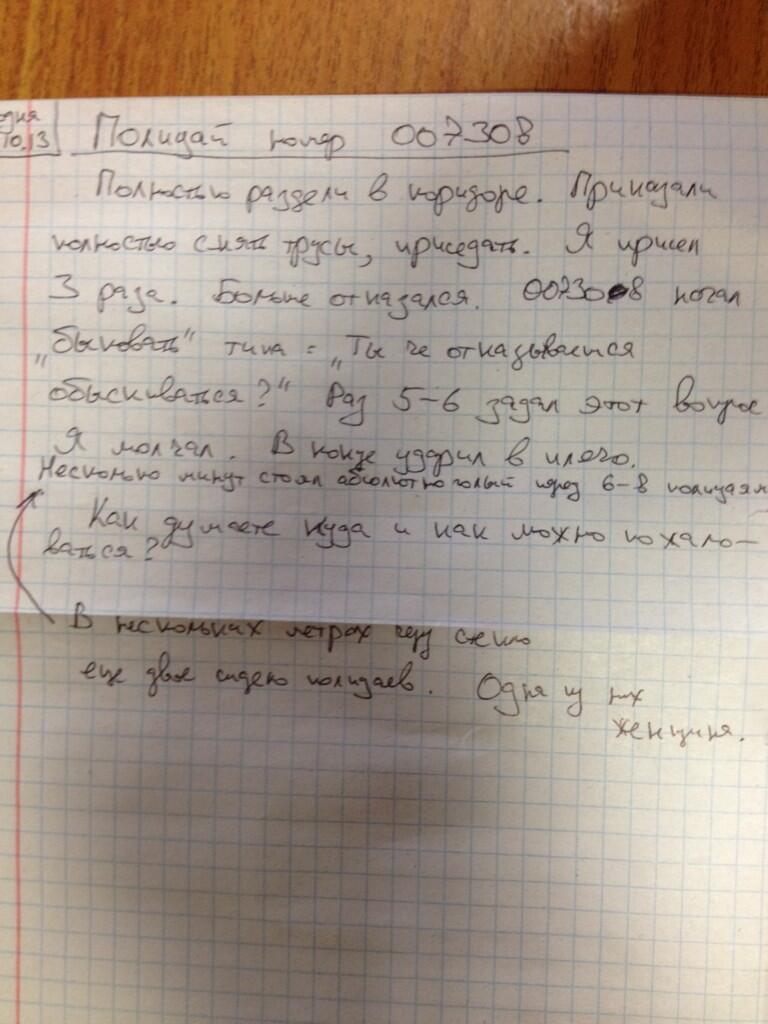 10.13
Полицай номер 007308
Полностью раздели в коридоре. Приказали
полностью снять трусы, приседать. Я присел
3 раза. Больше отказался. 007308 начал
„быковать" типа = „Ты че отказываешся
обыскиваться?" Раз 5-6 задал этот вопрос
Я молчал. В конце ударил в плечо.
Несколько минут стоял абсолютно голый перед 6-8 полицаям
Как думаете куда и как можно пожало-
ваться?
В нескольких метрах через стекло
еще двое сидело полицаев. Одна из них
женщина.